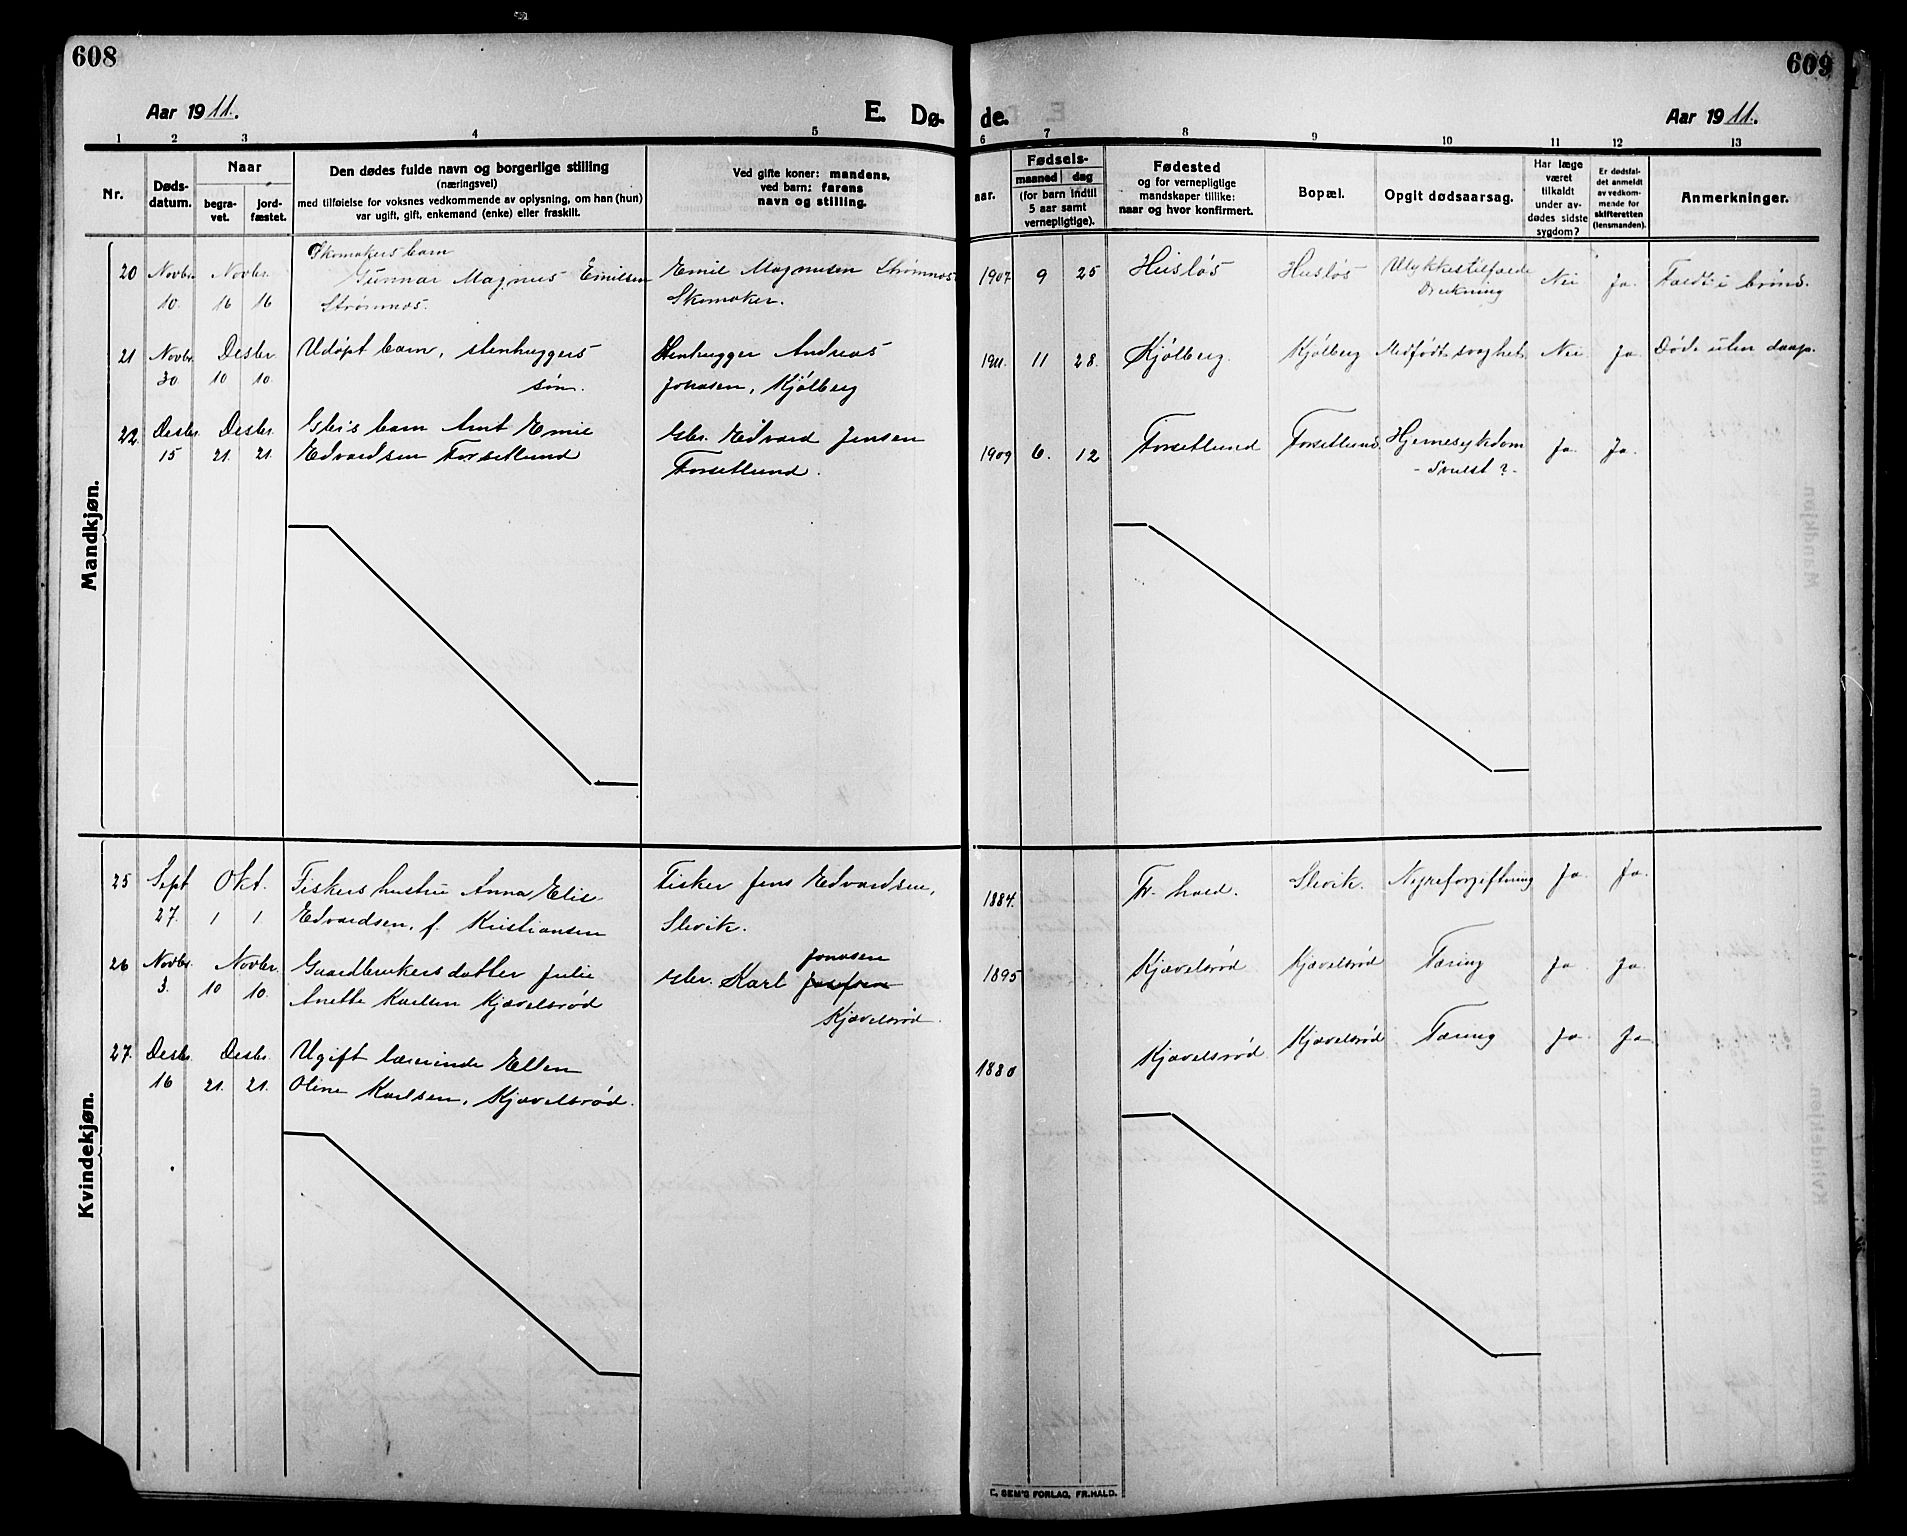 608
609
Aar 1911.
E. Dø-
de.
Aar 1911.
1 2 3 4 5 6 7 8 9 10 11 12 13
Nr.
Døds-
datum.
Naar
begra-
vet.
jord-
fæstet.
Den dødes fulde navn og borgerlige stilling
(næringsvei)
med tilføielse for voksnes vedkommende av oplysning, om han (hun)
var ugift, gift, enkemand (enke) eller fraskilt.
Ved gifte koner: mandens,
ved barn; farens
navn og stilling.
aar.
Fødsels-
maaned dag
(for barn indtil
5 aar samt
vernepligtige).
Fødested
og for vernepligtige
mandskaper tillike:
naar og hvor konfirmert.
Bopæl.
Opgit dødsaarsag.
Har læge
været
tilkaldt
under av-
dødes sidste
sygdom?
Er dødsfal-
det anmeldt
av vedkom-
mende for
skifteretten
(lensmanden).
Anmerkninger.
Mandkjøn.
Skomakers barn
20 Novbr. Novbr. Gunnar Magnus Emilsen Emil Magnusen Strømnæs 1907 9 25 Husløs Husløs Ulykkestilfælde Nei Ja. Faldt i brønd.
10. 16 16 Strømnæs. Skomaker. Drukning
21 Novbr. Desbr. Udøpt barn, stenhuggers Stenhugger Andreas 1911. 11 28. Kjølberg. Kjølberg Medfødt svaghet Nei Ja Døde uten daap.
30 10 10. søn. Jonasen, Kjølberg
22. Desbr. Desbr. Gbr's barn Arnt Emil Gbr. Edvard Jensen 1909 6. 12 Torsetlund Torsetlund. Hjernesykdom Ja. Ja.
15 21. 21. Edvardsen Torsetlund Torsetlund. - Svulst ? -
Kvindekjøn.
25 Sept Okt. Fiskers hustru Anna Elis Fisker Jens Edvardsen, 1884. Fr.hald. Slevik. Nyreforgiftning Ja. Ja.
27. 1 1. Edvardsen, f. Kristiansen Slevik.
26 Novbr. Novbr. Gaardbrukers datter Julie Gbr. Karl Jonasen 1895 Kjævelsrød Kjævelsrød Tæring Ja Ja.
3. 10 10. Anette Karlsen Kjævelsrød Kjævelsrød.
27. Desbr. Desbr. Ugift lærerinde Ellen 1880 Kjævelsrød Kjævelsrød Tæring Ja. Ja
16 21. 21. Oline Karlsen, Kjævelsrød.
C. SEM'S FORLAG, FR.HALD.